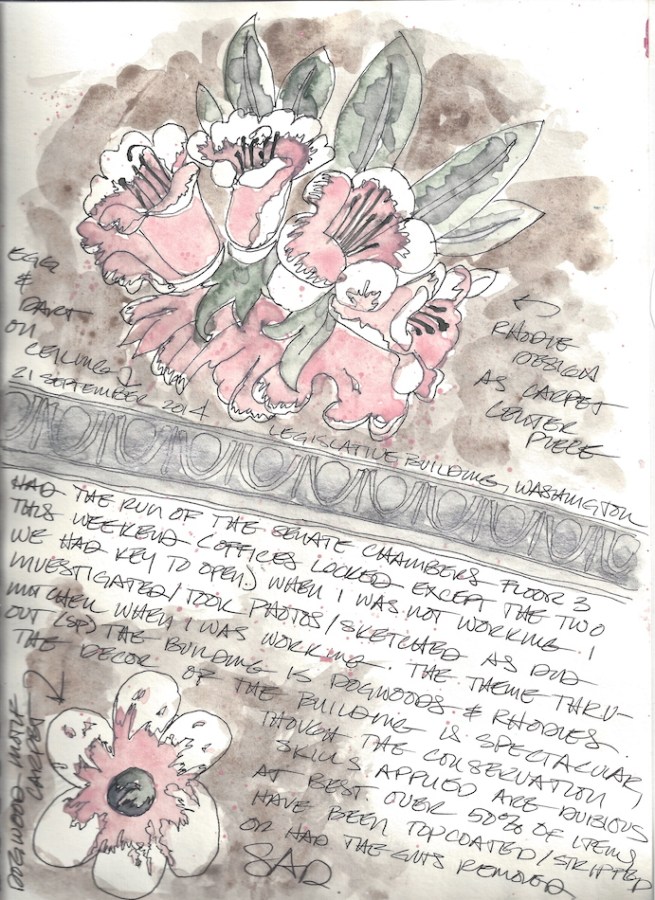 EGG
&
DART
ON
CEILING
21 SEPTEMBER 2014
RHODIE
DESIGN
AS CARPET
CENTER
PIECE
LEGISLATIVE BUILDING, WASHINGTON
HAD THE RUN OF THE SENATE CHAMBERS FLOOR 3
THIS WEEKEND (OFFICES LOCKED EXCEPT THE TWO
WE HAD KEY TO OPEN.) WHEN I WAS NOT WORKING I
INVESTIGATED/TOOK PHOTOS/SKETCHED AS DID
MITCHELL WHEN I WAS WORKING. THE THEME THRU-
OUT (SP) THE BUILDING IS DOGWOODS & RHODIES.
THE DECOR OF THE BUILDING IS SPECTACULAR,
THOUGH THE CONSERVATION
SKILLS APPLIED ARE DUBIOUS
AT BEST OVER 50% OF ITEMS
HAVE BEEN TOPCOATED/STRIPPED
OR HAD THE GUTS REMOVED
SAD
DOGWOOD MOTIF
CARPET